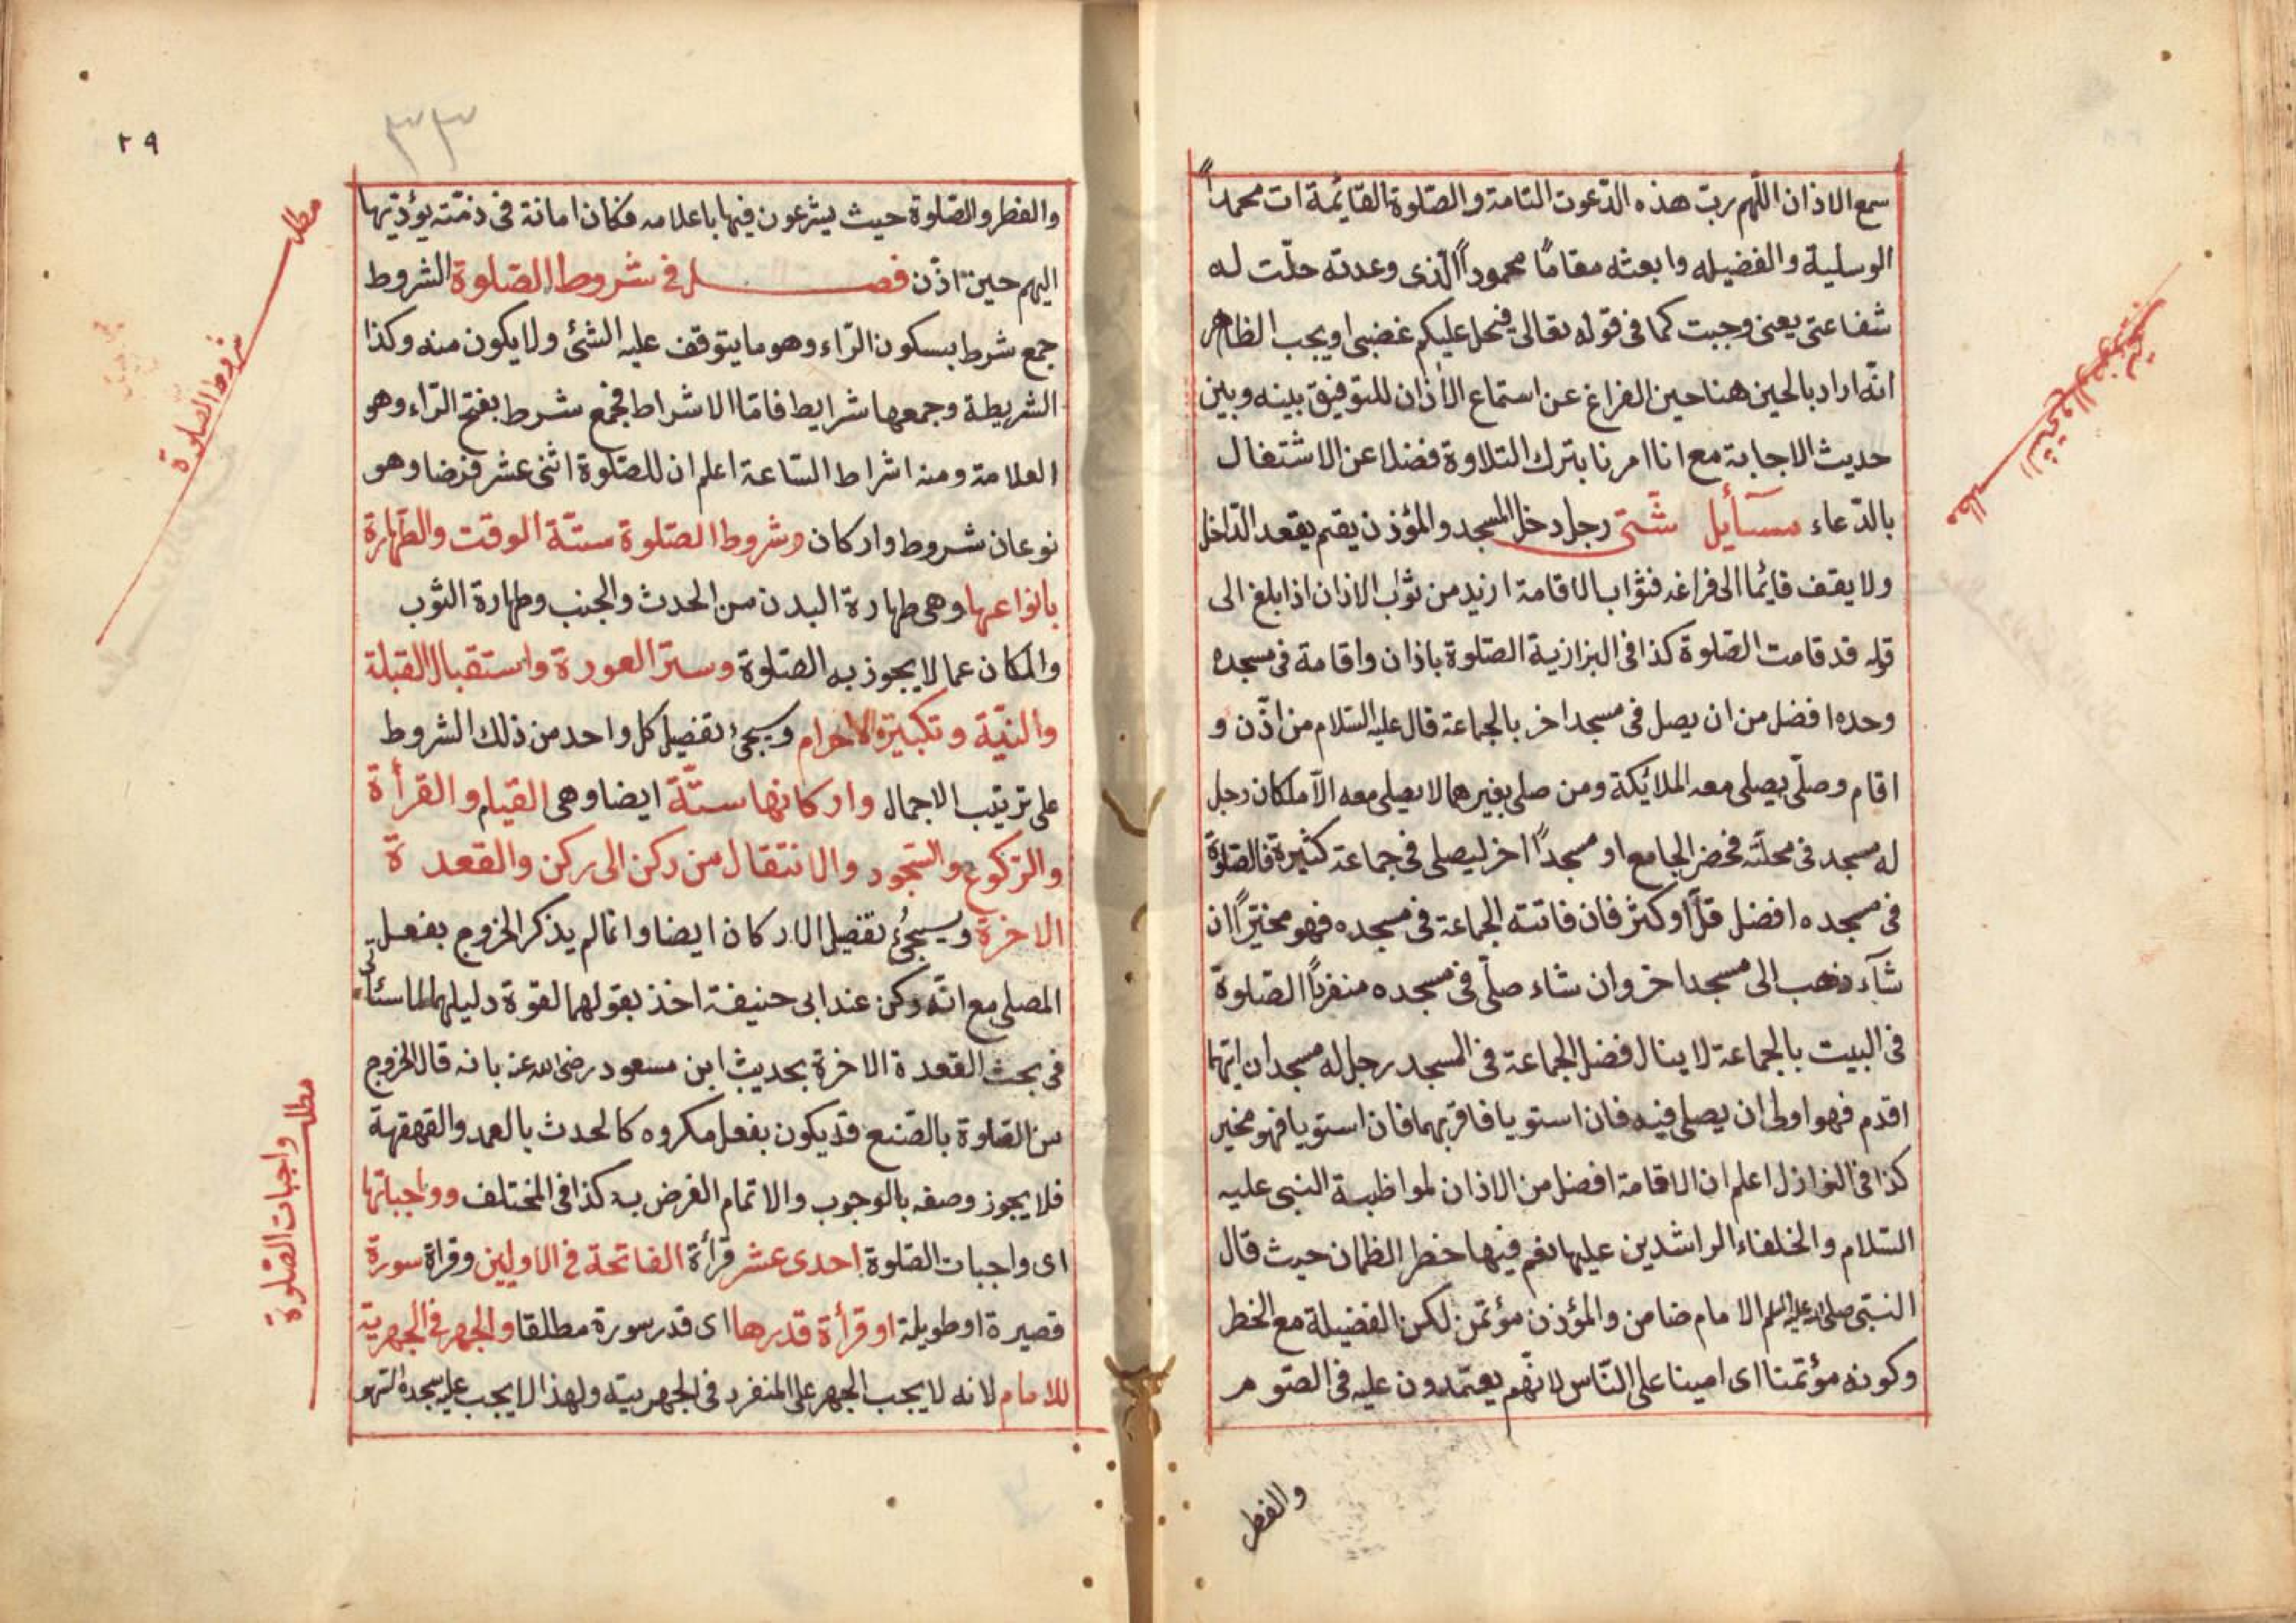 سمع الاذان اللهم ربّ هذه الدّعوت التامة والصّلوة القائمة ات محمداً
الوسلية والفضيله وابعثه مقامًا محموداً الّذى وعدته حلّت له
شفاعتى يعنى وجبت كما فى قوله تعالى فيحل عليكم غضبى اويجب الظاهر
انّه اراد بالحين هنا حين الفراغ عن استماع الاذان للتوفيق بينه وبين
حديث الاجابة مع انا امرنا بترك التلاوة فضلا عن الاشتغال
بالدّعاء مسآيل شتّى رجل دخل المسجد والمؤذن يقيم يقعد الدّاخل
ولا يقف قائما الى فراغه فثواب الاقامة ازيد من ثواب الاذان اذا بلغ الى
قوله قد قامت الصّلوة كذا فى البزازية الصّلوة باذان واقامة فى مسجده
وحده افضل من ان يصل فى مسجد اخر بالجماعة قال عليه السّلام من اذّن و
اقام وصلّى يصلى معه الملائكة ومن صلى بغيرهما لا يصلى معه الّا ملكان رجل
له مسجد فى محلّته فحضر الجامع او مسجداً اخر ليصلى فى جماعة كثيرة فالصّلوة
فى مسجده افضل قلّ او كثر فان فاتته الجماعة فى مسجده فهو مخيّر ان
شآء ذهب الى مسجد اخر وان شاء صلّى فى مسجده منفرداً الصّلوة
فى البيت بالجماعة لا ينال فضل الجماعة فى المسجد رجل له مسجدان ايّهما
اقدم فهو اولى ان يصلى فيه فان استويا فاقربهما فان استويا فهو مخير
كذا فى النوازل اعلم ان الاقامة افضل من الاذان لمواظبة النبى عليه
السّلام والخلفاء الراشدين عليها نعم فيها خطر الظمان حيث قال
النّبى صلى الله عليه وسلم الامام ضامن والمؤذن مؤتمن لكن الفضيلة مع الخطر
وكونه مؤتمنا اى امينا على النّاس لانّهم يعتمدون عليه فى الصّوم
والفطر
٢٩
٣٣
والفطر والصّلوة حيث يشرعون فيها باعلامه فكان امانة فى ذمّته يؤدّيها
اليهم حين اذّن فصل فى شروط الصّلوة الشروط
جمع شرط بسكون الرّاء وهو ما يتوقف عليه الشئ ولا يكون منه وكذا
الشريطة وجمعها شرايط فامّا الاشراط فجمع شرط بفتح الرّاء وهو
العلامة ومنه اشراط السّاعة اعلم ان للصّلوة اثنى عشر فرضا وهو
نوعان شروط واركان وشروط الصّلوة ستّة الوقت والطّهارة
بانواعها وهى طهارة البدن من الحدث والجنب وطهارة الثوب
والمكان عما لا يجوز به الصّلوة وستر العورة واستقبال القبلة
والنيّة وتكبيرة الاحرام ويجىٔ تفصيل كل واحد من ذلك الشروط
على ترتيب الاجمال واركانها ستّة ايضا وهى القيام والقرأة
والرّكوع والسّجود والانتقال من ركن الى ركن والقعدة
الاخرة ويسيجىُٔ تفصيل الاركان ايضا وانما لم يذكر الخروج بفعل
المصلى مع انّه ركن عند ابى حنيفة اخذ بقولهما لقوة دليلهما
فى بحث القعدة الاخرة بحديث ابن مسعود رضى الله عنه بانه قال الخروج
من الصّلوة بالصّنع قد يكون بفعل مكروه كالحدث بالعمد والقهقهة
فلا يجوز وصفه بالوجوب والاتمام الفرض به كذا فى المختلف وواجباتها
اى واجبات الصّلوة احدى عشر قرأة الفاتحة فى الاوليين وقراة سورة
قصيرة او طويلة او قرأة قدرها اى قدر سورة مطلقا والجهر فى الجهرية
للامام لانه لا يجب الجهر على المنفرد فى الجهريّة ولهذا لا يجب عليه سجدة السّهو
مطلب
شروط الصّلوة
مطلب واجبات الصّلوة